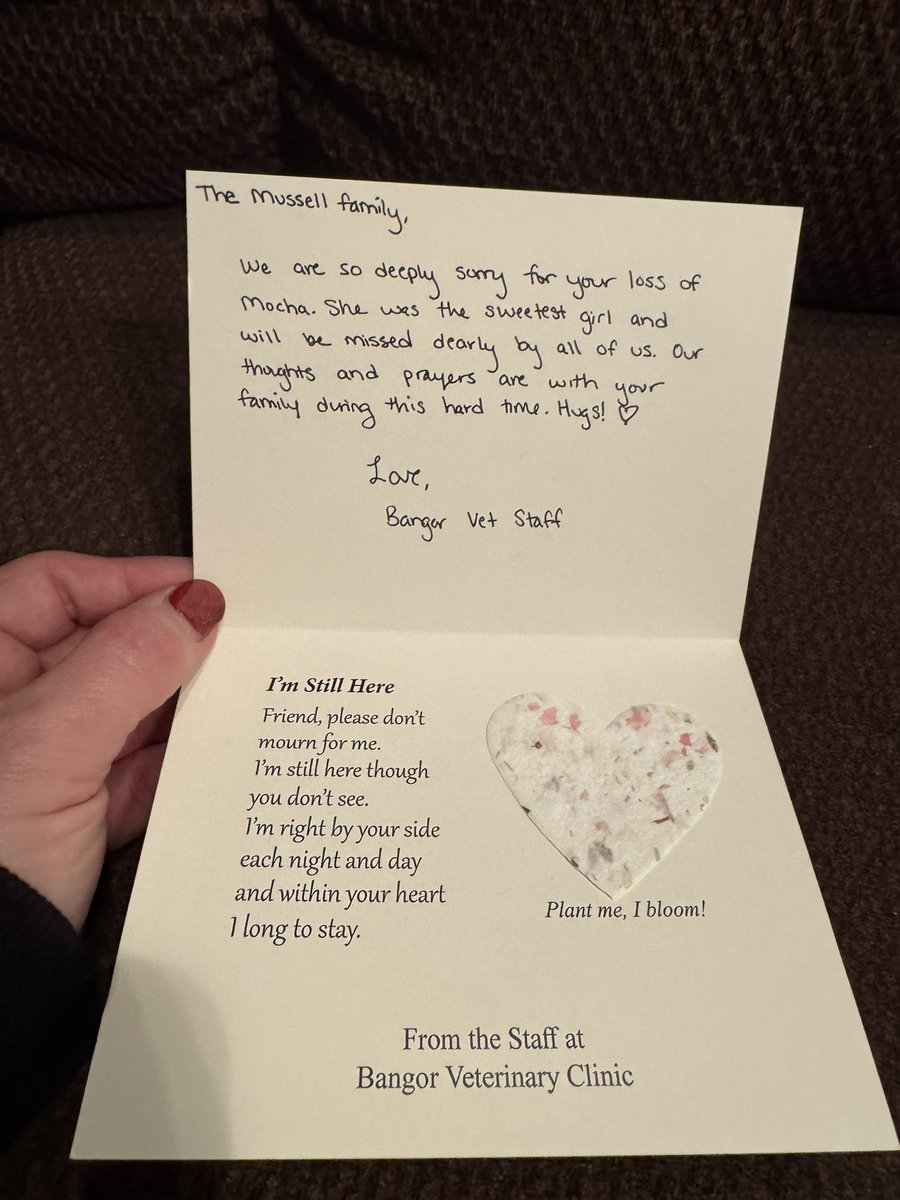 The Mussell family,
We are so deeply sorry for your loss of
Mocha. She was the sweetest girl and
will be missed dearly by all of us. Our
thoughts and prayers are with your
family during this hard time. Hugs! ♡
Love,
Bangor Vet Staff
I'm Still Here
Friend, please don't
mourn for me.
I'm still here though
you don't see.
I'm right by your side
each night and day
and within your heart
I long to stay.
Plant me, I bloom!
From the Staff at
Bangor Veterinary Clinic